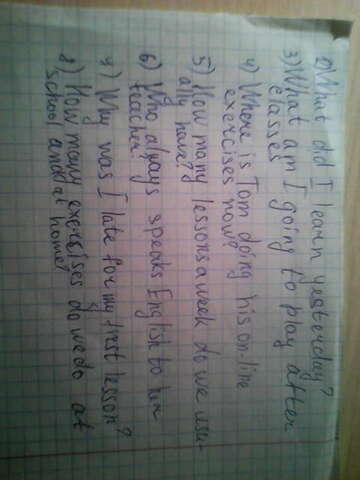 2) What did I learn yesterday?
3) What am I going to play after
classes
4) Where is Tom doing his on-line
exercises now?
5) How many lessons a week do we usu-
ally have?
6) Who always speaks English to her
teacher?
7) Why was I late for my first lesson?
8) How many exercises do we do at
school and at home?